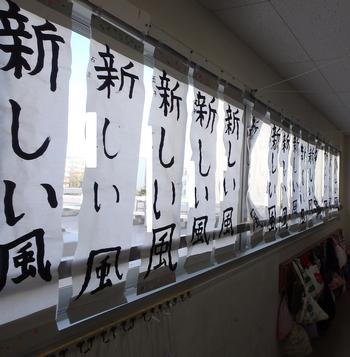 新しい風
新しい風
新しい風
新しい風
新しい風
新しい風
新しい風
新しい風